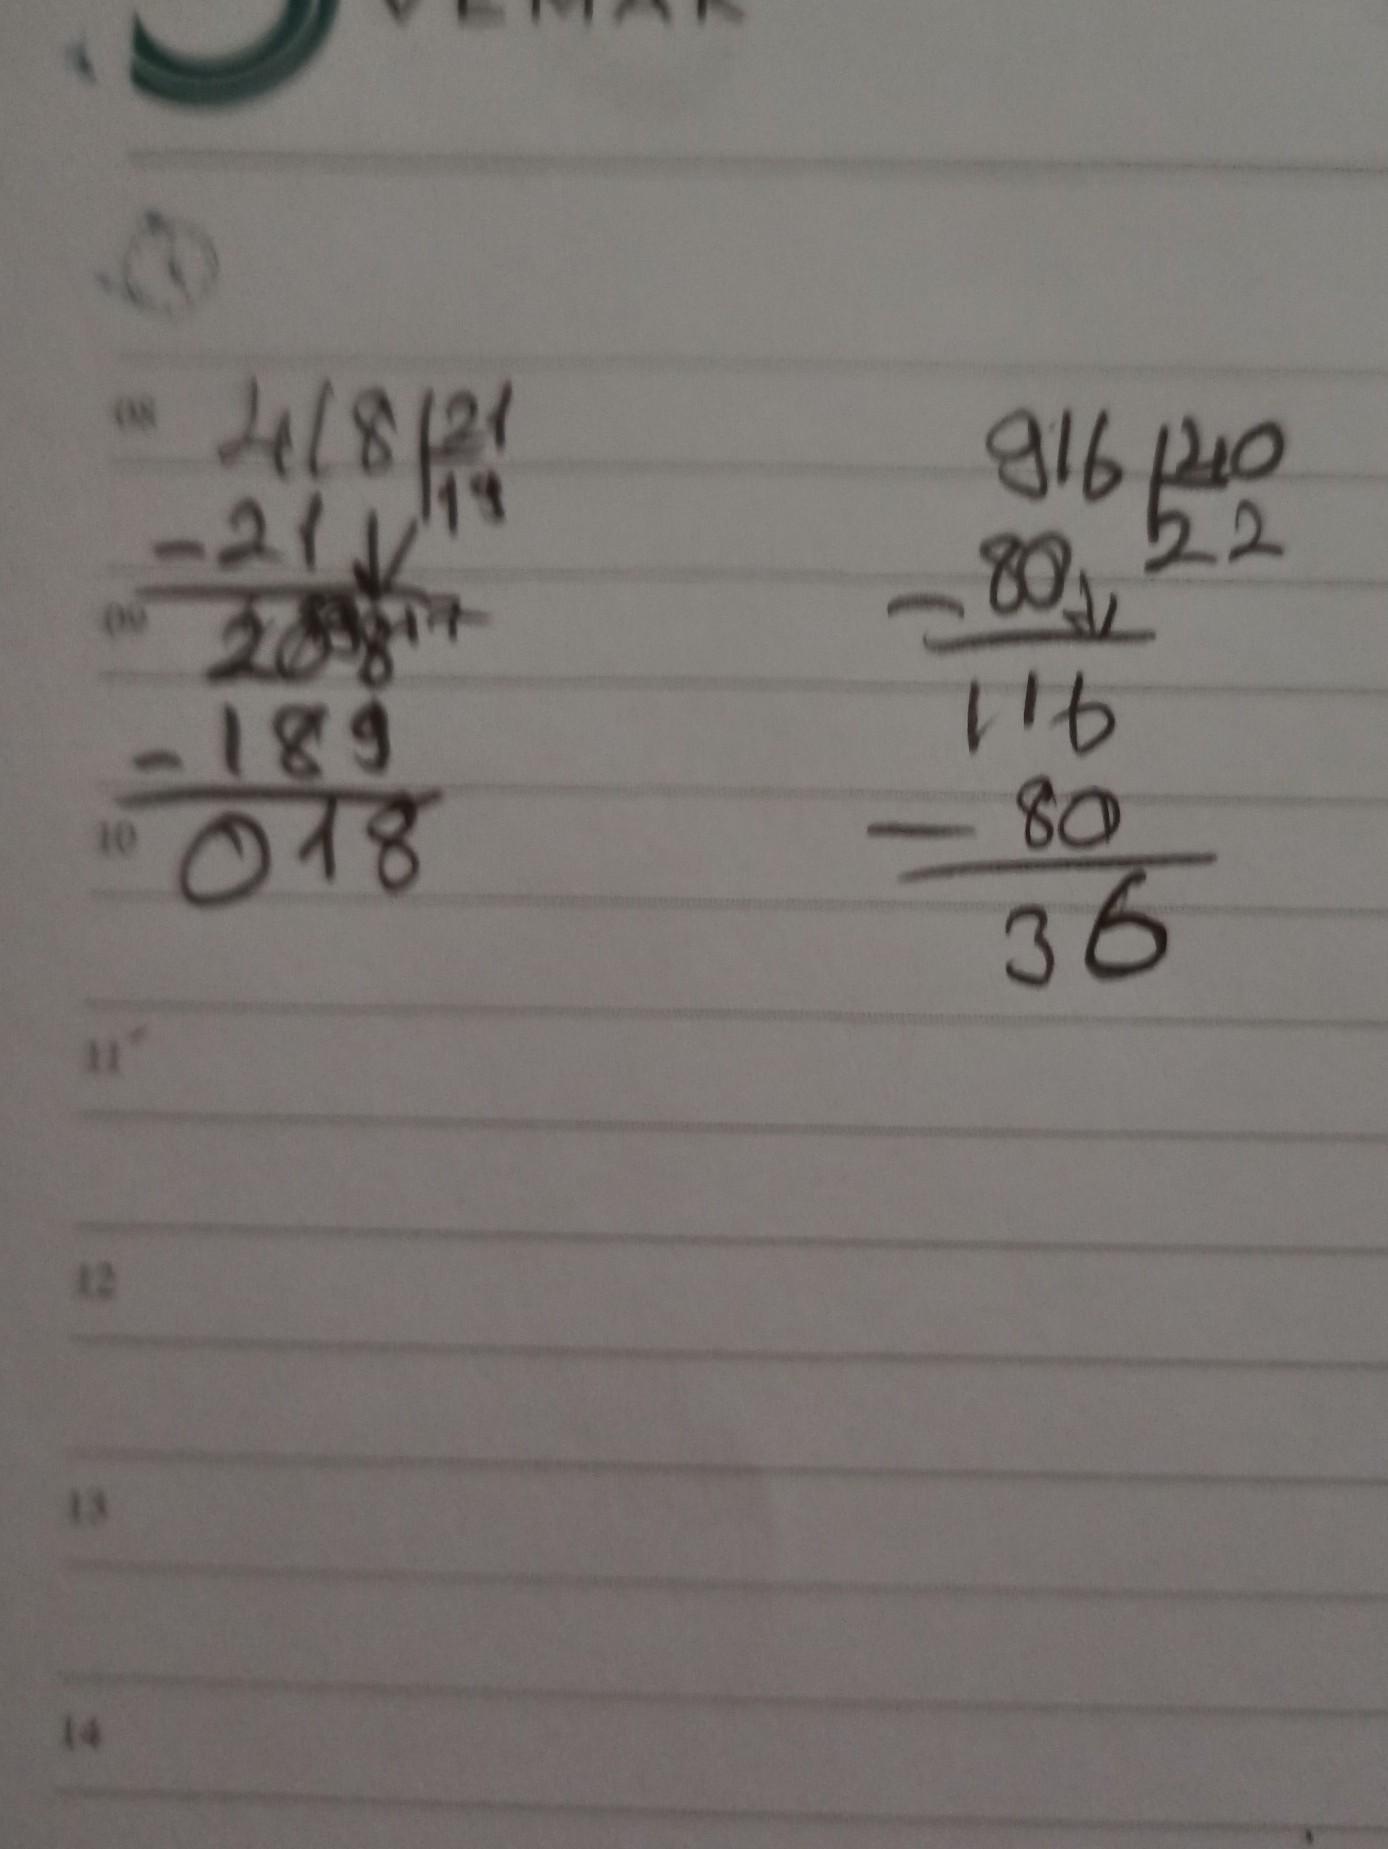 VEMAK
08
418 21
19
- 21
09
208
- 189
10
018
916 40
22
- 80
116
- 80
36
11
12
13
14